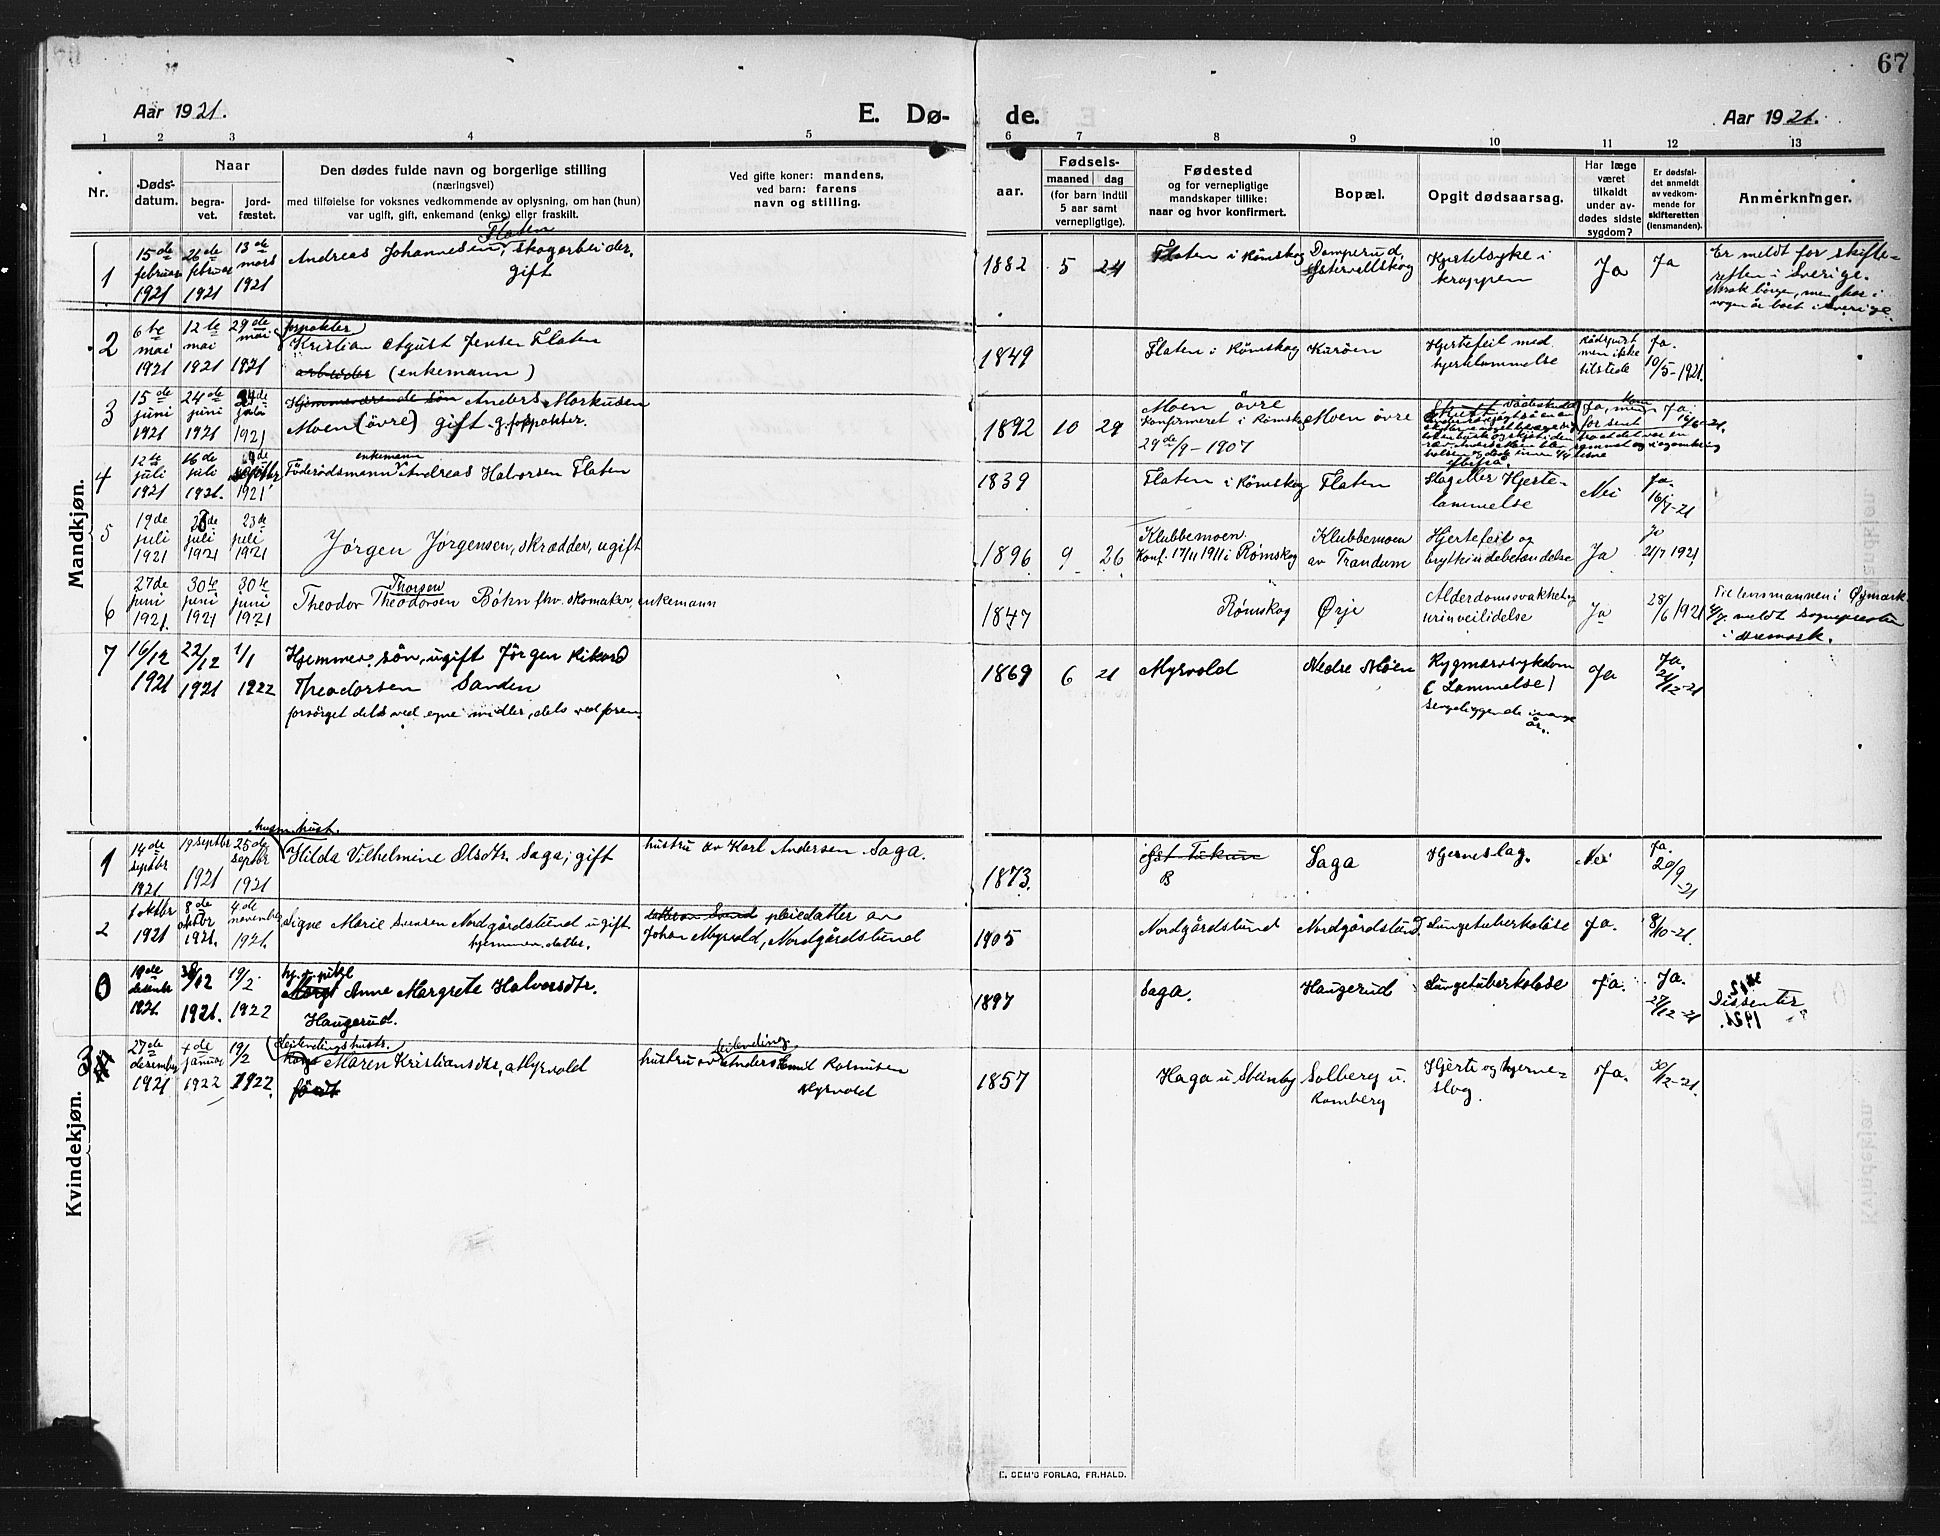 67
Aar 1921.
E. Dø-
de.
Aar 1921.
1 2 3 4 5 6 7 8 9 10 11 12 13
Nr.
Døds-
datum.
Naar
begra-
vet.
jord-
fæstet.
Den dødes fulde navn og borgerlige stilling
(næringsvei)
med tilføielse for voksnes vedkommende av oplysning, om han (hun)
var ugift, gift, enkemand (enke) eller fraskilt.
Ved gifte koner: mandens,
ved barn: farens
navn og stilling.
aar.
Fødsels-
maaned dag
(for barn indtil
5 aar samt
vernepligtige).
Fødested
og for vernepligtige
mandskaper tillike:
naar og hvor konfirmert.
Bopæl.
Opgit dødsaarsag.
Har læge
været
tilkaldt
under av-
dødes sidste
sygdom?
Er dødsfal-
det anmeldt
av vedkom-
mende for
skifteretten
(lensmanden).
Anmerkninger.
Mandkjøn.
1
15de
februar
1921
26de
februar
1921
13de
mars
1921
Flaten
Andreas Johannesen, skogarbeider,
gift
1882 5 24
Flaten i Rømskog
Damperud,
Østervallskog
Kjertelsyke i
kroppen
Ja
Ja
Er meldt for skifte-
retten i Sverige.
Norsk borger, men har i
nogen år boet i Sverige.
2
6te
mai
1921
12te
mai
1921
29de
mai
1921
forpakter
Kristian August Jensen Flaten
arbeider (enkemann)
1849
Flaten i Rømskog
Kurøen
Hjertefeil med
hjertelammelse
rådspurt
men ikke
tilstede
Ja.
10/5-1921.
3
15de
juni
1921
24de
juni
1921
juli
1921
Hjemmeværende søn Anders Markusen
Moen (øvre) gift - g. forpakter.
1892 10 29
Moen øvre
Konfirmeret i Rømskog
29de/9 - 1907
Moen øvre
Ja, men
for sent
Ja.
16/6-21.
4
12te
juli
1921
16de
juli
1921.
1921
enkemann
Føderådsmann Andreas Halvorsen Flaten
1839
Flaten i Rømskog
Flaten
Slag eller Hjerte-
lammelse
Nei
Ja.
16/7-21
5
19de
juli
1921
juli
1921
23de
juli
1921
Jørgen Jørgensen, skrædder, ugift
1896 9 26
Klubbemoen.
Konf. 17/11 1911 i Rømskog
Klubbemoen
av Trandum
Hjertefeil og
brythindebetændelse
Ja
Ja
21/7 1921
6
27de
juni
1921.
30te
juni
1921
30te
juni
1921
Thorsen
Theodor Theodorsen Bøhn fhv. skomaker, enkemann
1847
Rømskog
Ørje
Alderdomssvakhet og
urinveilidelse
Ja
28/6 1921
Til lensmannen i Øymark
meldt Sognepresten
i Aremark.
7
16/12
1921
22/12
1921
1/1
1922
Hjemmev. søn, ugift Jørgen Rikard
Theodorsen Sanden
forsørget dels ved egne midler, dels ved foren.
1869 6 21
Myrvold
Nedre Moen
Rygmarvsykdom
(Lammelse)
sengeliggende i mange
år.
Ja
Ja.
21/12-21
Kvindekjøn.
1
14de
septbr
1921
19 septbr
1921
25de
septbr
1921
husm. hust.
Hilda Vilhelmine Olsdtr. Saga, gift
hustru av Karl Andersen Saga.
1873.
B
Saga
Hjerneslag.
Nei
Ja.
20/9-21
2
1 oktbr
1921
8de
oktbr
1921.
4de
november
1921
Signe Marie Svensen Nordgårdslund ugift
hjemmev. datter.
pleiedatter av
Johan Myrvold, Nordgårdslund
1905
Nordgårdslund
Nordgårdslund.
Lungetuberkoløse
Ja.
8/10-21.
0
19de
desembr
1921.
/12
1921.
19/2
1922
hj. v. pike
Anne Margrete Halvorsdtr.
Haugerud.
1897
Saga.
Haugerud
Lungetuberkolose
Ja.
Ja.
27/12-21
Dissenter
1921.
3
27de
desember
1921
4de
januar
1922
19/2
1922.
(leilendingshustr.
Maren Kristiansdtr. Myrvold
født
leilending
hustru av Anders Emil Rasmussen
Myrvold
1857
Haga u. Stenby
Solberg u.
Romberg
Hjerte og hjerne-
slag.
Ja.
30/12-21.
E. SEM'S FORLAG, FR.HALD.